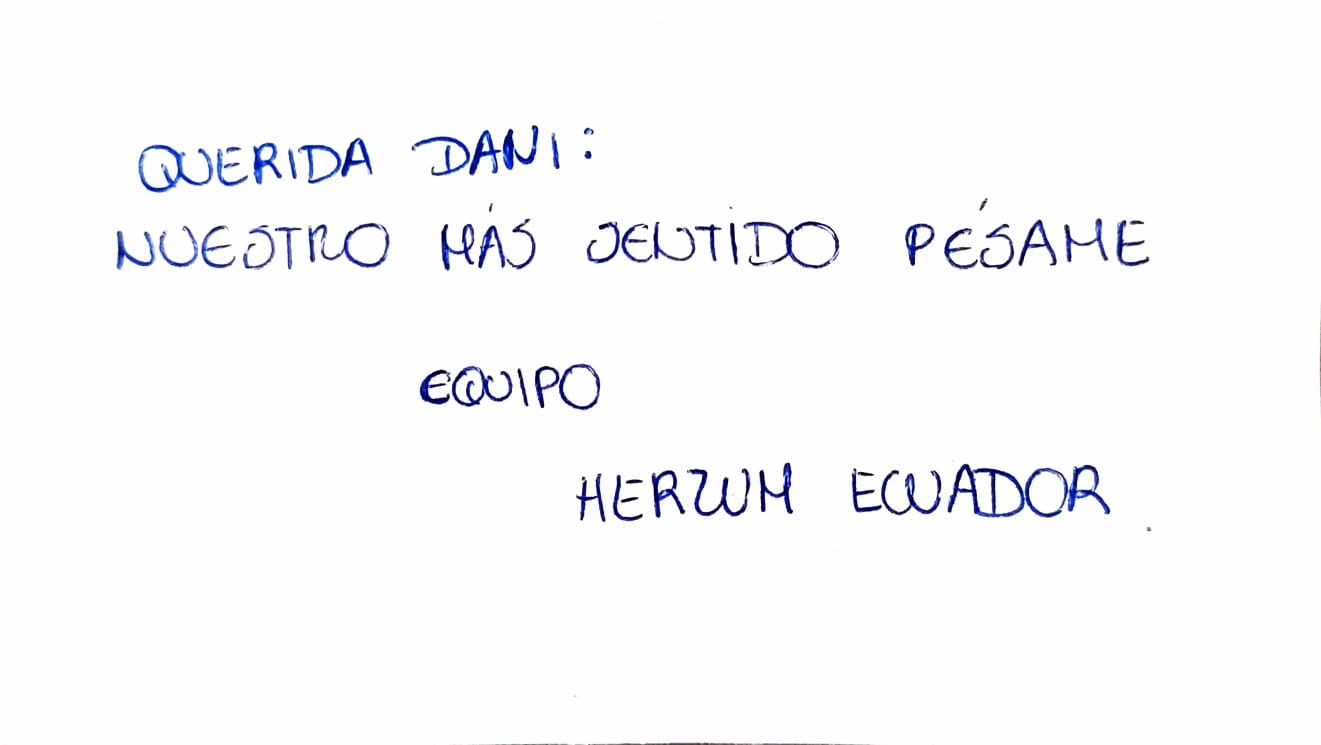 QUERIDA DANI:
NUESTRO MÁS SENTIDO PÉSAME
EQUIPO
HERZUM ECUADOR.